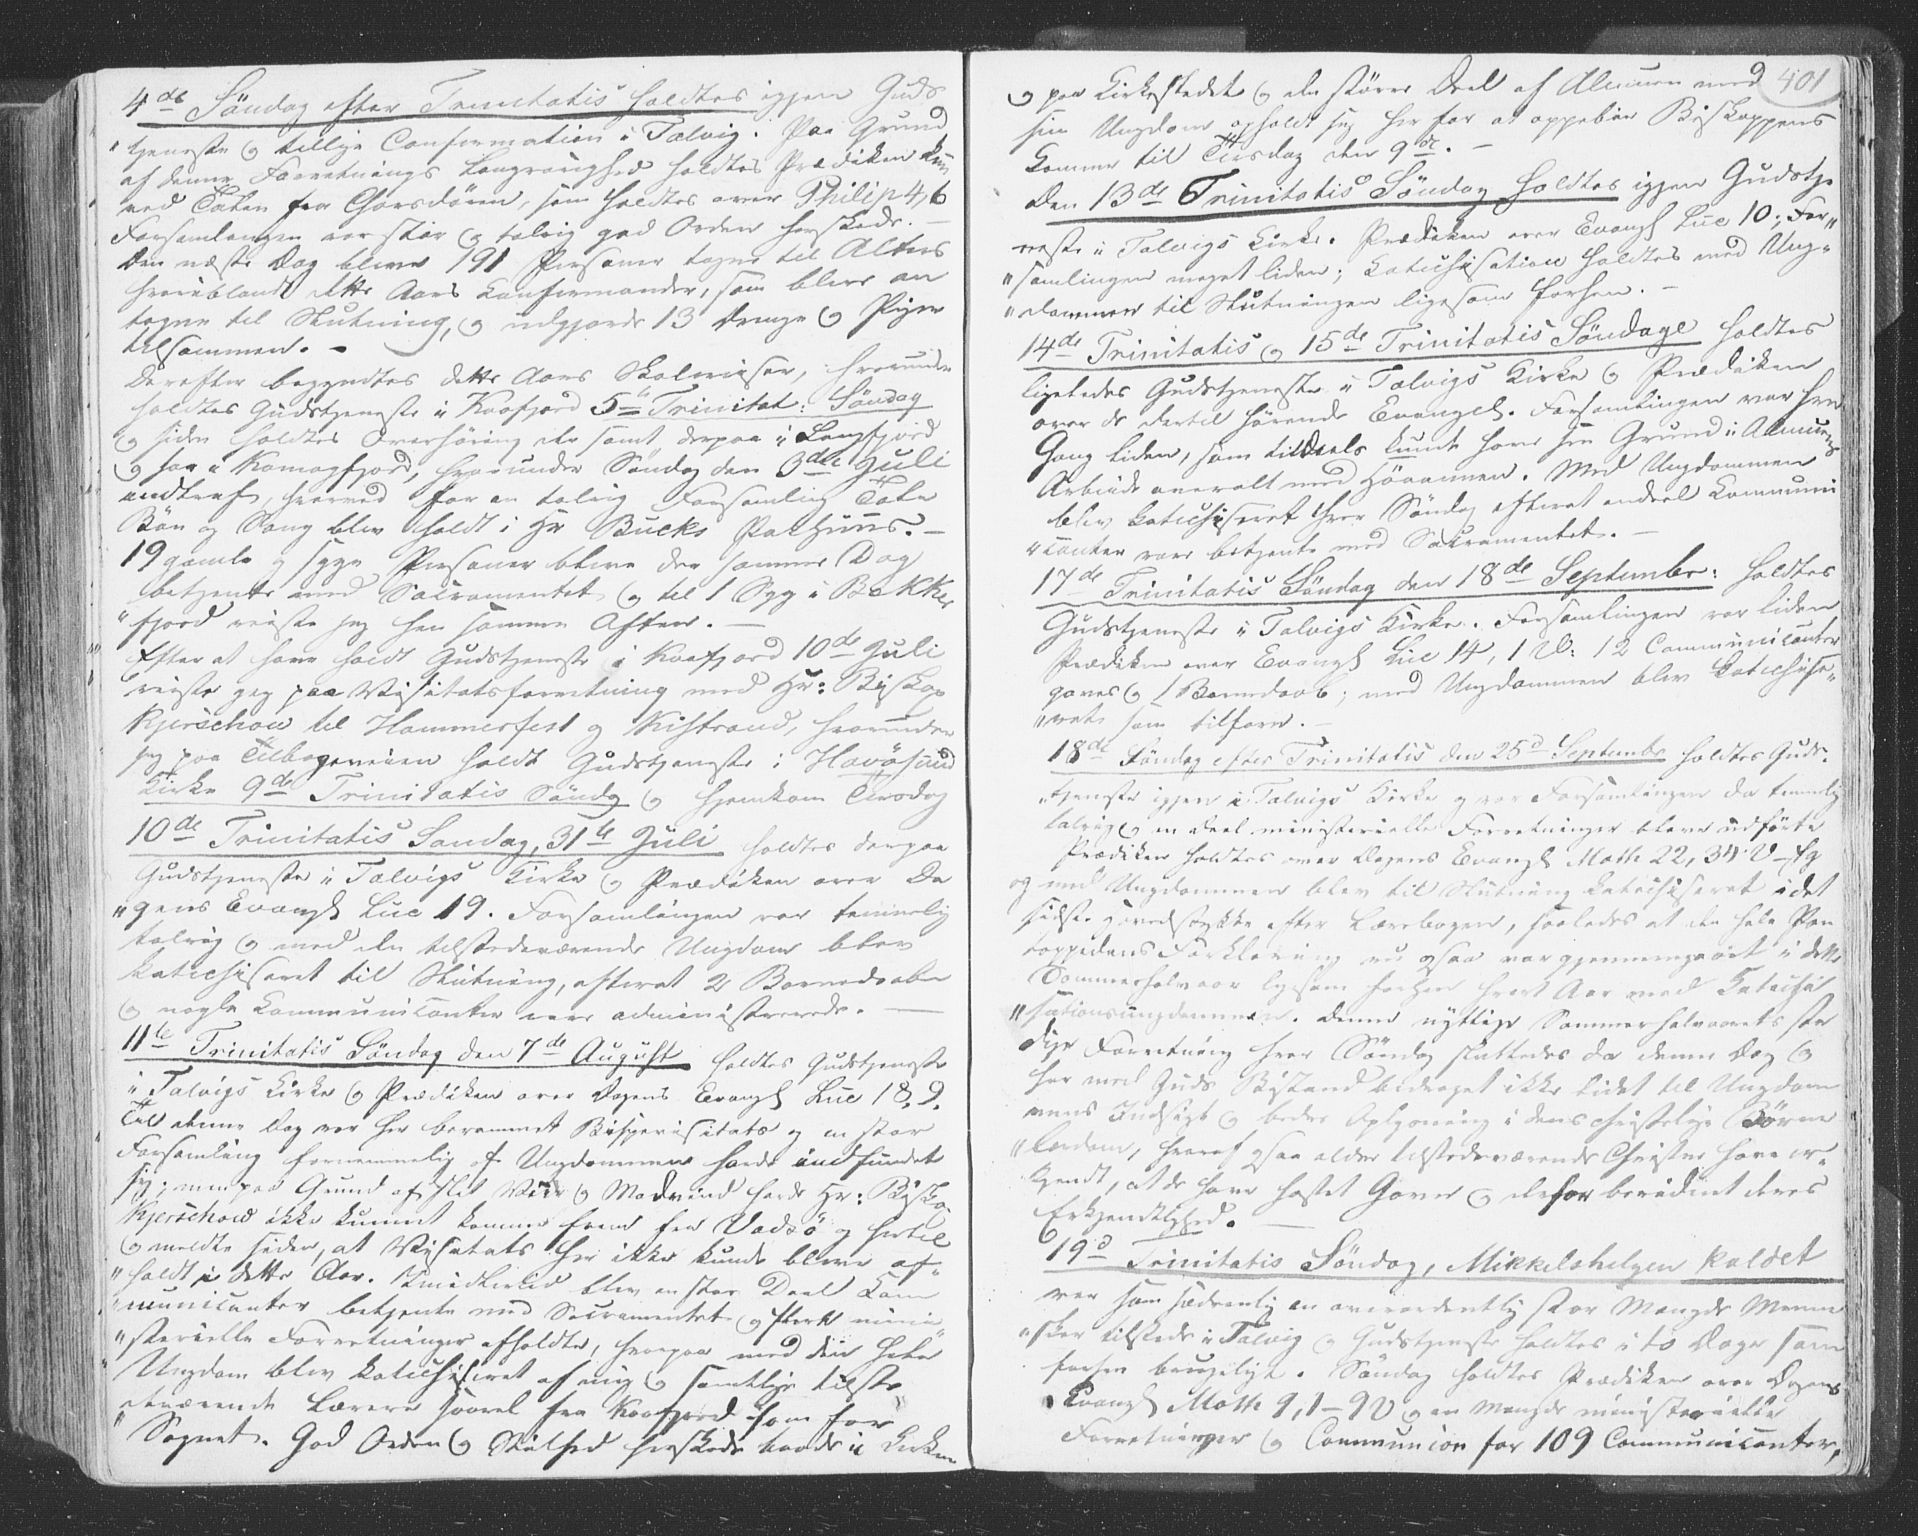 4de Søndag efter Trinitatis holdtes igjen Guds
"tjeneste og tillige Confirmation i Talvig. Paa Grund
af denne Forretnings Langvarighed holdtes Prædiken kun
ved Talen fra Chorsdøren, som holdtes over Philip 4,6
Forsamlingen var stor og talrig god Orden herskede. —
Den næste Dag bleve 191 Personer tagne til Alters
hvoriblandt dette Aars Confirmander, som bleve an
tagne til Slutning, og udgjorde 13 Drenge og Piger
tilsammen. —
Derefter begyndtes dette Aars Skolereiser, hvorunder
holdtes Gudstjeneste i Kaafjord 5te Trinitat: Søndag
og siden holdtes Overhøring der samt derpaa i Langfjord
og saa i Komagfjord, hvorunder Søndag den 3die Juli
indtraf, hvorved for en talrig Forsamling Tale
Bøn og Sang blev holdt i Hr Bucks Pakhuus. —
19 gamle og syge Personer bleve den samme Dag
betjente med Sacramentet og til 1 Syg i Bekker
"fjord reiste jeg hen samme Aften. —
Efter at have holdt Gudstjeneste i Kaafjord 10de Juli
reiste jeg paa Visitatsforretning med Hr: Biskop
Kjerschow til Hammerfest og Kistrand, hvorunder
jeg paa Tilbageveien holdt Gudstjeneste i Havøsund
Kirke 9de Trinitatis Søndg og hjemkom Tirsdag
10de Trinitatis Søndag, 31te Juli holdtes derpaa
Gudstjeneste i Talvigs Kirke og Prædiken over Da
"gens Evangl Luc 19. Forsamlingen var temmelig
talrig og med den tilstedeværende Ungdom blev
katechiseret til Slutning, efterat 2 Barnedaabe
og nogle Communicanter vare administrerede. —
11te Trinitatis Søndag den 7de August holdtes Gudstjeneste
i Talvigs Kirke og Prædiken over Dagens Evangl Luc 18,9.
Til denne Dag var her berammet Bispevisitats og en stor
Forsamling fornemmelig af Ungdommen havde indfundet
sig; men paa Grund af slet Veir og Modvind havde Hr: Biskop
Kjerschow ikke kunnet komme frem fra Vadsø og hertil
og meldte siden, at Visitats her ikke kunde blive af"
"holdt i dette Aar. Imidlertid blev en stor Deel Com
"municanter betjente med Sacramentet og flere mini
"sterielle Forretninger afholdte, hvorpaa med den hele
Ungdom blev katechiseret af mig og samtlige tilste
deværende Lærere saavel fra Kaafjord som for
"Sognet. God Orden og Stilhed herskede baade i Kirken
401
og paa Kirkestedet og den større Deel af Almuen med
sin Ungdom opholdt sig her for at oppebie Biskoppens
Komme til Tirsdag den 9de. —
Den 13de Trinitatis Søndag holdtes igjen Gudstje
neste i Talvigs Kirke. Prædiken over Evangl Luc 10; For"
"samlingen meget liden; Katechisation holdtes med Ung"
"dommen til Slutningen ligesom forhen. —
14de Trinitatis og 15de Trinitatis Søndage holdtes
ligeledes Gudstjeneste i Talvigs Kirke og Prædiken
over de dertil hørende Evangel. Forsamlingen var hver
Gang liden, som tildeels kunde have sin Grund i Almuens
Arbeide overalt med Høaannen. Med Ungdommen
blev katechiseret hver Søndag efterat endeel Communi
"canter vare betjente med Sacramentet. —
17de Trinitatis Søndag den 18de Septembr: holdtes
Gudstjeneste i Talvigs Kirke. Forsamlingen var liden
Prædiken over Evangl Luc 14, 1 V: 12 Communicanter
gaves og 1 Barnedaab; med Ungdommen blev katechise"
"ret som tilforn. —
18de Søndag efter Trinitatis den 25d Septembr holdtes Guds"
"tjeneste igjen i Talvigs Kirke og var Forsamlingen da temmelig
talrig og en deel ministerielle Forretninger bleve udførte
Prædiken holdtes over Dagens Evangl Math 22, 34 V - fg
og med Ungdommen blev til Slutning katechiseret i det
sidste Hovedstykke efter Lærebogen, saaledes at den hele Pon
toppidans Forklaring nu ogsaa var gjennemgaaet i dette
Sommerhalvaar ligesom forhen hvert Aar med Katechi
"sationsungdommen. Denne nyttige Sommerhalvaarets sta
dige Forretning hver Søndag sluttedes da denne Dag og
har med Guds Bistand bidraget ikke lidet til Ungdom
mens Indsigt og bedre Oplysning i dens christelige Børne
"lærdom, hvoraf ogsaa ældre tilstedeværende Christne have er"
kjendt, at de have høstet Gavn og derfor bevidnet deres
Erkjendtlighed. —
19d Trinitatis Søndag, Mikkelshelgen kaldet
var som sædvanlig en overordentlig stor Mængde Menne
"sker tilstede i Talvig og Gudstjeneste holdtes i to Dage som
forhen brugeligt. Søndag holdtes Prædiken over Dagens
Evangl Math 9, 1-9 V og en Mængde ministerielle
Forretninger og Communion for 109 Communicanter,